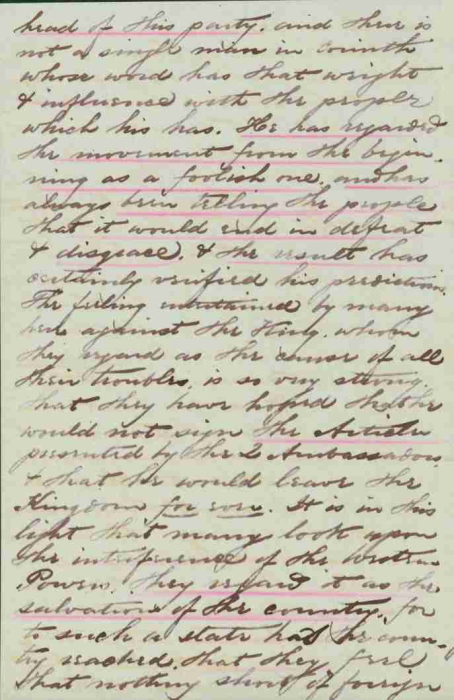 head of this party. and there is
not a single man in Corinth
whose word has that weight
& influence with the people
which his has. He has regarded
the movement from the begin-
ning as a foolish one, and has
always been telling the people
that it would end in defeat
& disgrace, & the result has
certainly verified his prediction.
The feeling entertained by many
here against the King, whom
they regard as the cause of all
their troubles, is so very strong
that they have hoped that he
would not sign the Articles
presented by the 2 Ambassadors
& that he would leave the
Kingdom for ever. It is in this
light that many look upon
the interference of the western
Powers. They regard it as the
salvation of the country, for
to such a state had the coun-
try reached, that they feel
that nothing short of foreign